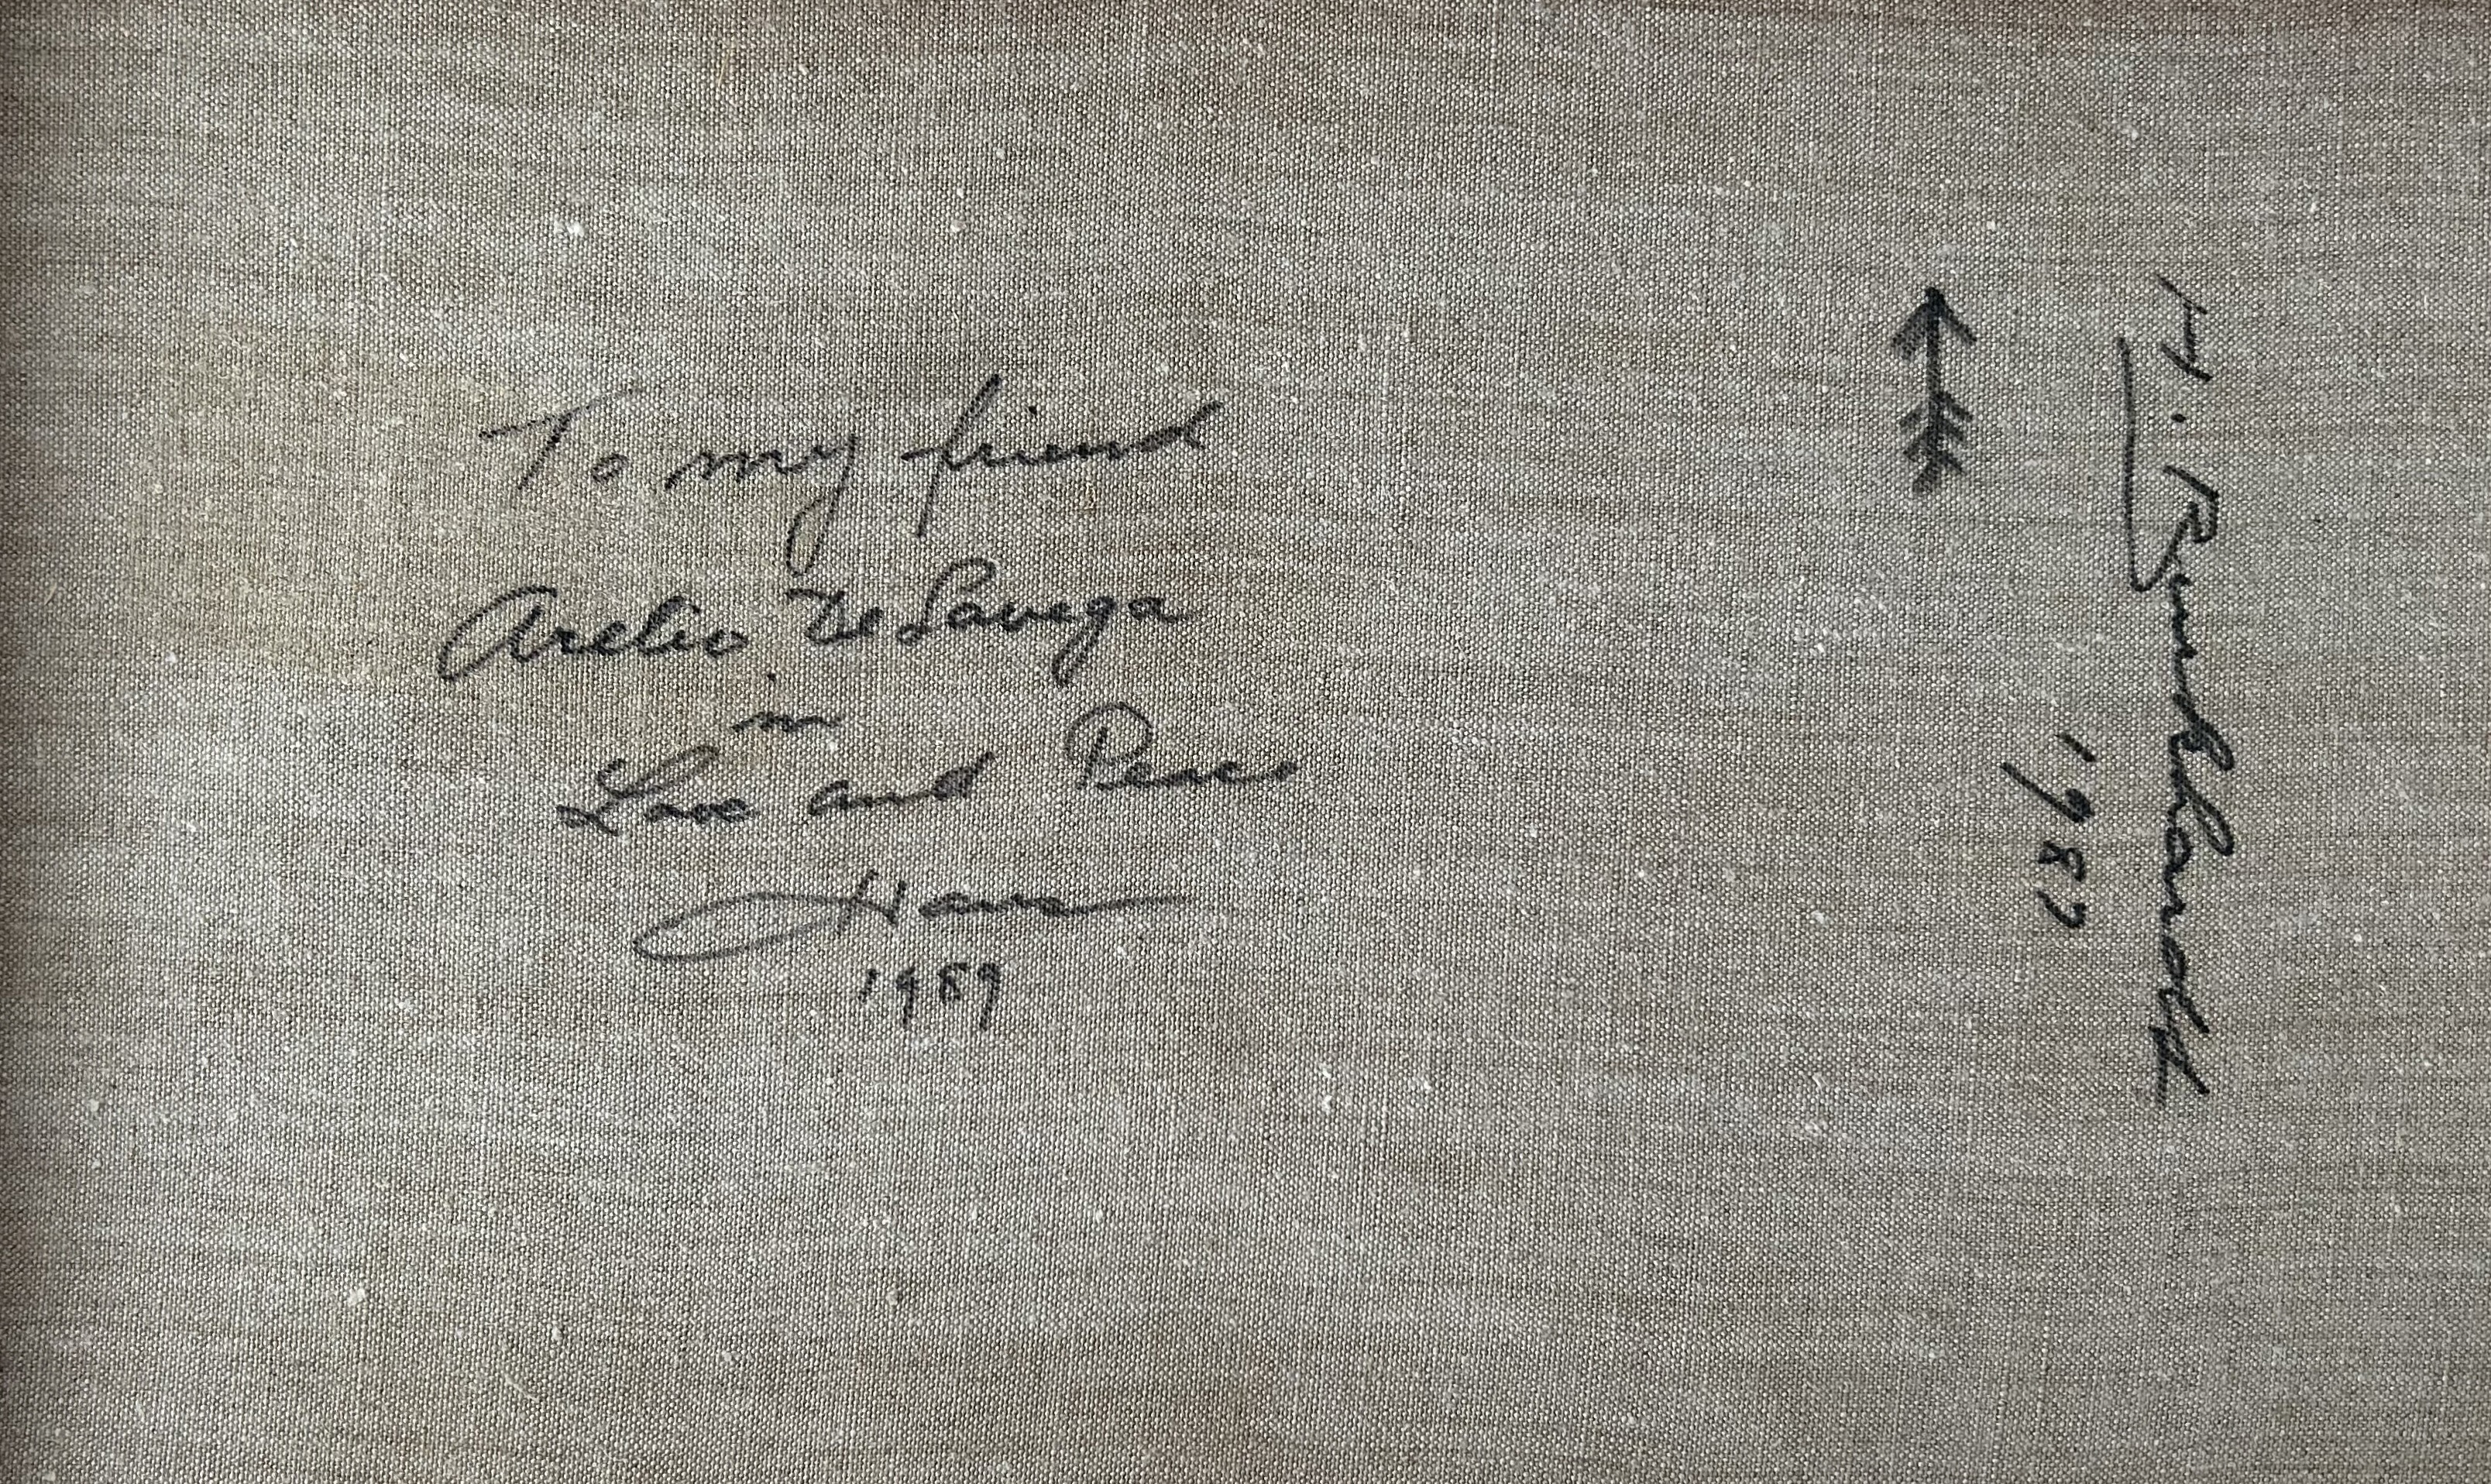 To my friend
Arelio De Lavega
in
Love and Peace
Hans
1989
H. Burkhardt
1987